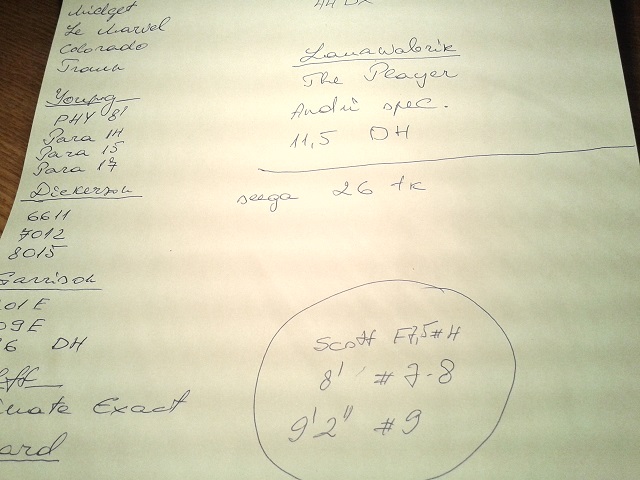 Midget
Le Marvel
Colorado
Young
PHY 8'
Para 14
Para 15
Para 17
Dickerson
6611
7012
8015
Garrison
01 E
09 E
6 DH
Exact
ard
The Player
André spec.
11,5 DH
seega 26 tk
Scott F7,5#H
8' #7-8
9'2" #9